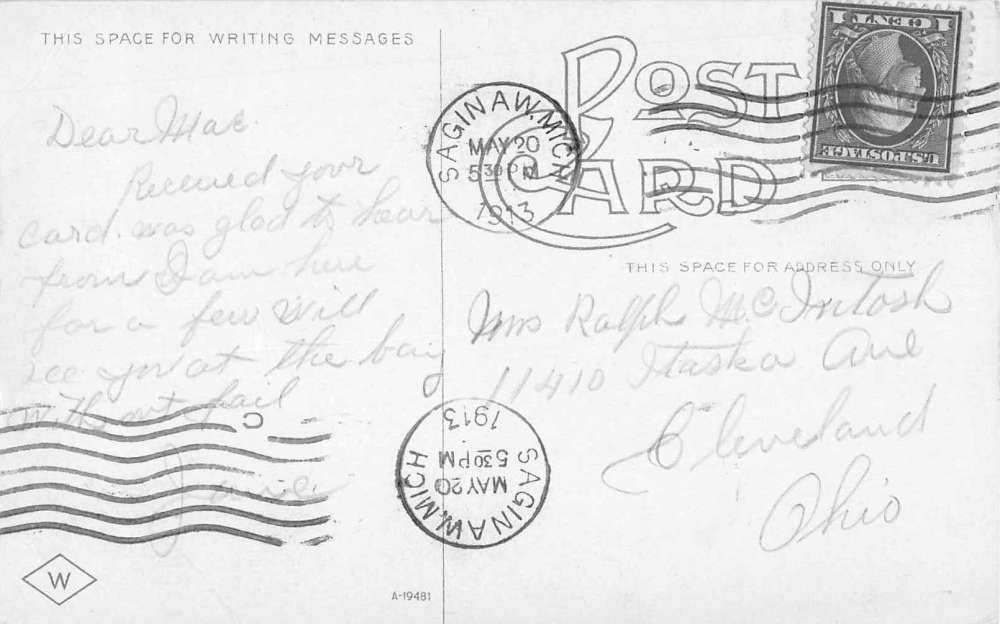 THIS SPACE FOR WRITING MESSAGES
Dear Mae.
Received your
card. was glad to hear
from I am here
for a few will
see you at the bay
without fail
POST
CARD
SAGINAW, MICH.
MAY 20
5 30 PM
1913
U.S. POSTAGE
1 CENT 1
THIS SPACE FOR ADDRESS ONLY
Mrs Ralph McIntosh
11410 Itaska Ave
Cleveland
Ohio
SAGINAW, MICH
MAY 20
5 30 PM
1913
C
W
A-19481